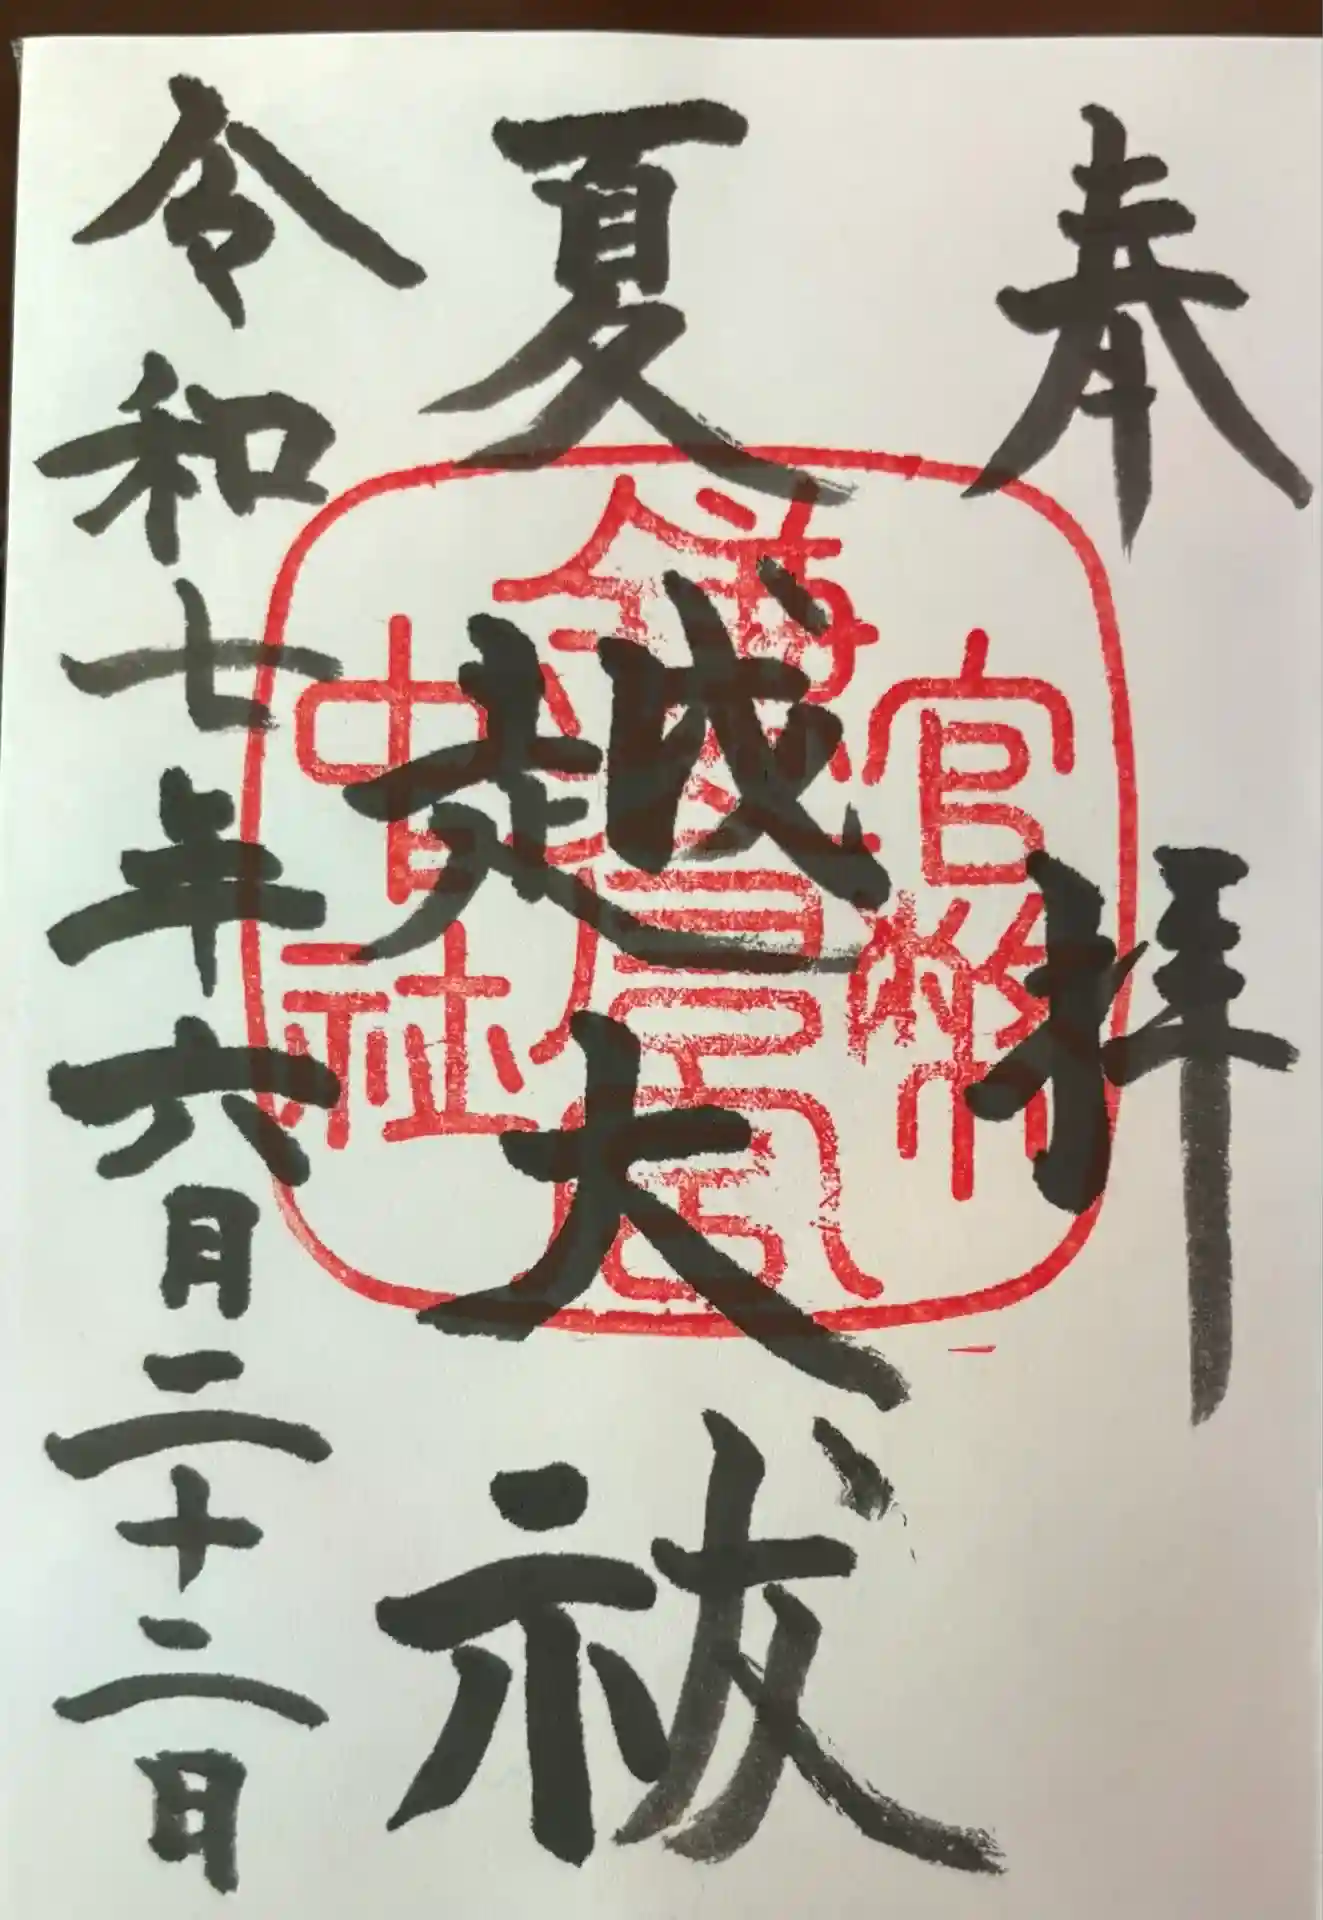 奉拝
夏越大祓
令和七年六月二十二日
官幣
鎌倉宮
中社